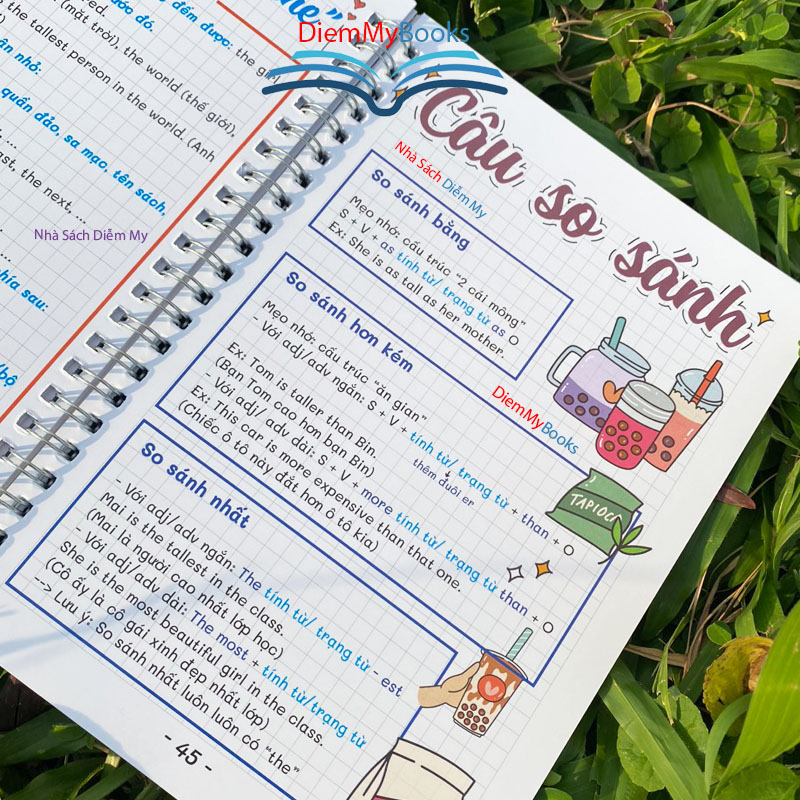 DiemMyBooks
đếm được: the girl
(mặt trời), the world (thế giới),
the tallest person in the world. (Anh
ân nhỏ.
quần đảo, sa mạc, tên sách,
ast, the next, ...
Nhà Sách Diễm My
hía sau:
Câu so sánh
Nhà Sách Diễm My
So sánh bằng
Mẹo nhớ: cấu trúc "2 cái mông"
S + V + as tính từ/ trạng từ as O
Ex: She is as tall as her mother.
So sánh hơn kém
Mẹo nhớ: cấu trúc "ăn gian"
- Với adj/adv ngắn: S + V + tính từ/ trạng từ + than + O
thêm đuôi er
Ex: Tom is taller than Bin.
(Bạn Tom cao hơn bạn Bin)
- Với adj/ adv dài: S + V + more tính từ/ trạng từ than + O
Ex: This car is more expensive than that one.
(Chiếc ô tô này đắt hơn ô tô kia)
DiemMyBooks
TAPIOCA
So sánh nhất
- Với adj/adv ngắn: The tính từ/ trạng từ - est
Mai is the tallest in the class.
(Mai là người cao nhất lớp học)
- Với adj/adv dài: The most + tính từ/trạng từ
She is the most beautiful girl in the class.
(Cô ấy là cô gái xinh đẹp nhất lớp)
--> Lưu ý: So sánh nhất luôn luôn có "the"
- 45 -